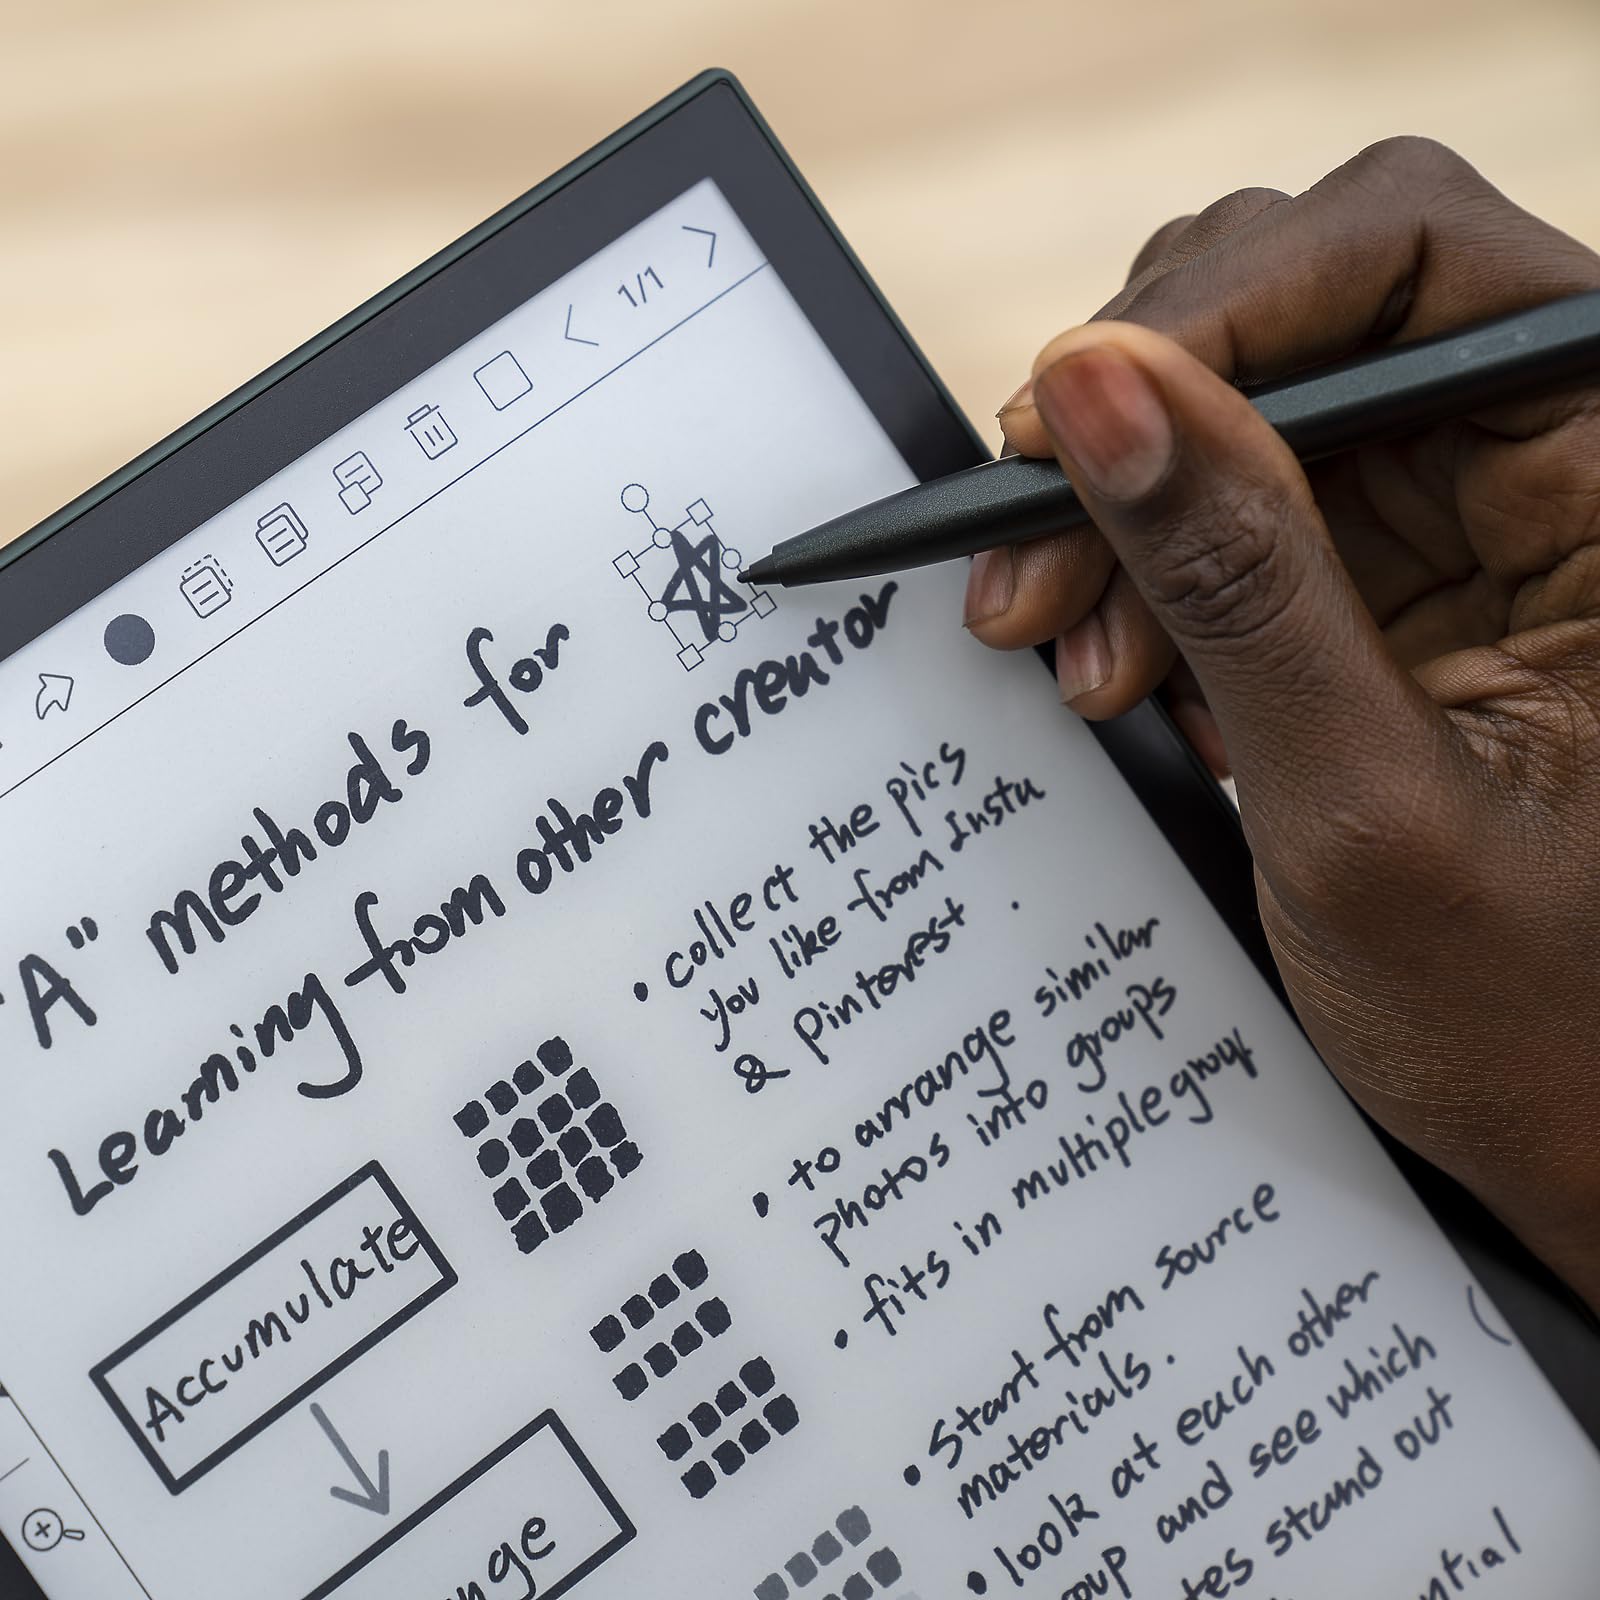 1/1
"A" methods for
Learning from other creator
• collect the pics
you like from Insta
& Pinterest .
Accumulate
• to arrange similar
photos into groups
• fits in multiple group
• Start from source
materials.
• look at each other
and see which
stand out